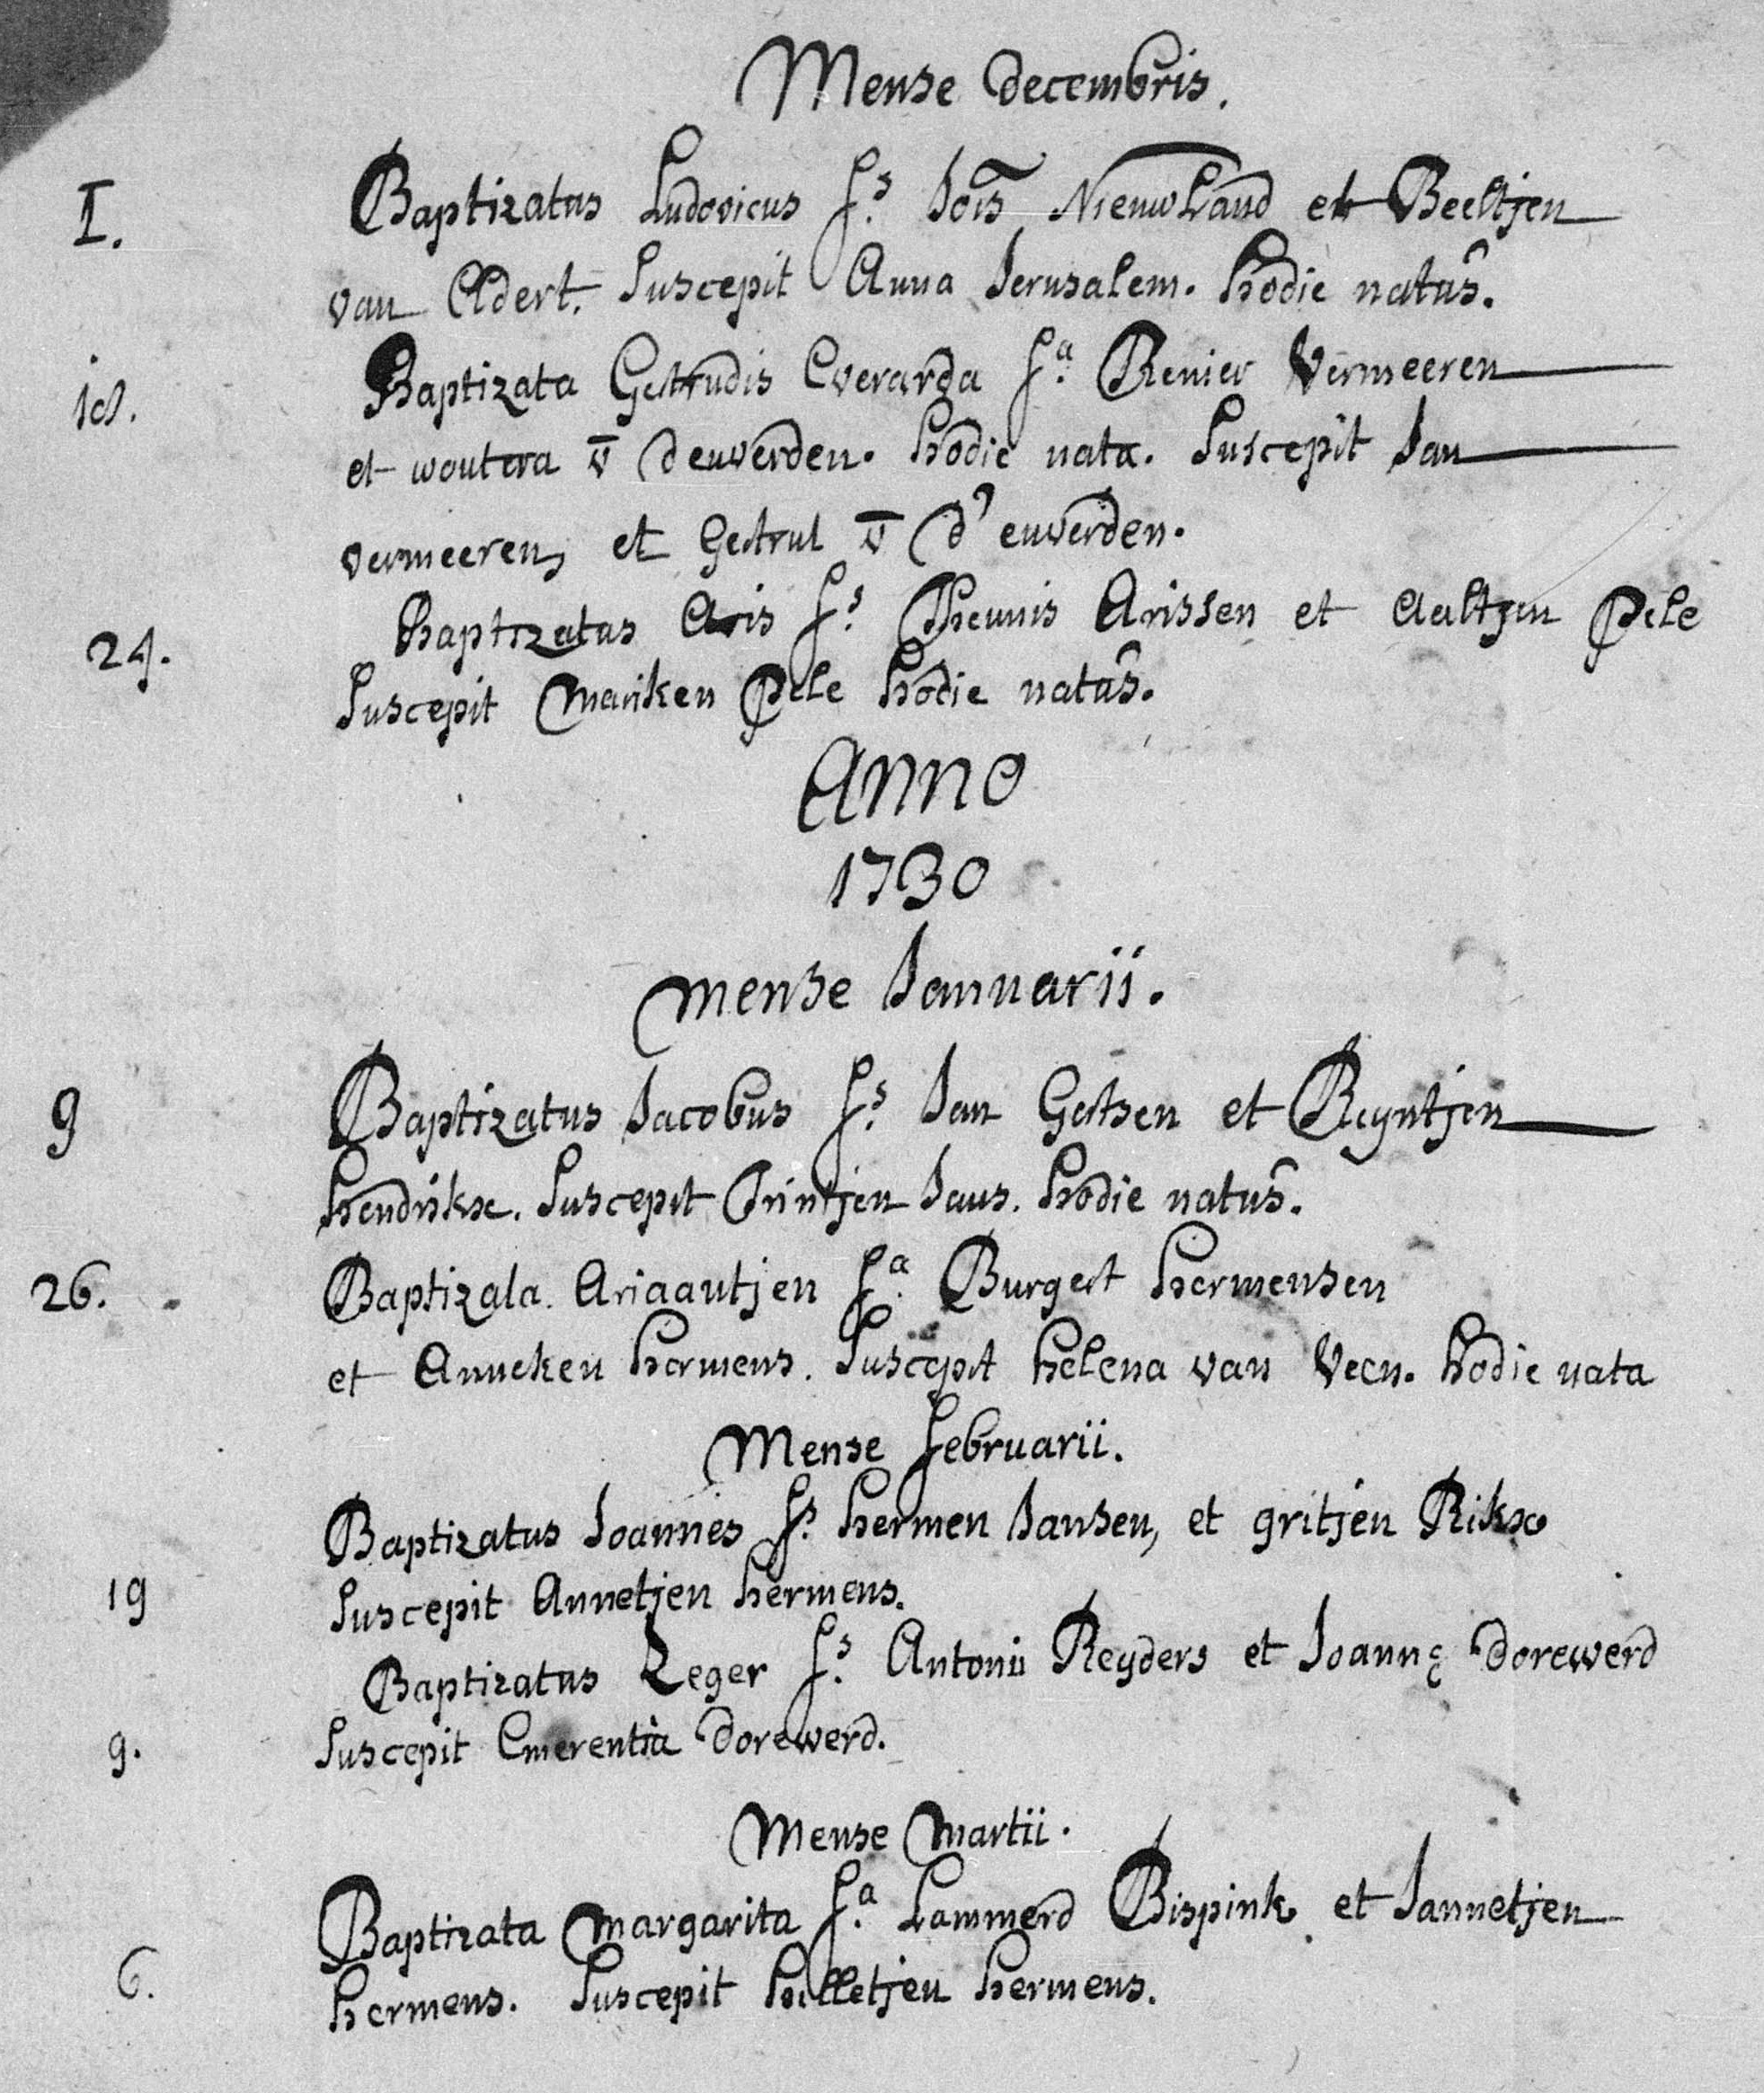 Mense decembris.
I. Baptizatus Ludovicus fs. Jois Nieuwland et Beeltjen
van Adert. Suscepit Anna Jerusalem. hodie natus.
18. Baptizata Gertrudis Everarda fa. Renier Vermeeren
et woutera v deuwerden. hodie nata. Suscepit Jan
vermeeren, et Gertrut v d'euwerden.
24. Baptizatus Aris fs. Theunis Arissen et Aaltjen Pele
Suscepit Mariken Pele hodie natus.
Anno
1730
mense Januarii.
9 Baptizatus Jacobus fs. Jan Gertsen et Reyntjen
hendrikse. Suscepit Trintjen Jans. hodie natus.
26. Baptizata Ariaantjen fa. Burgert hermensen
et Anneken hermens. Suscepit helena van Veen. hodie nata
Mense februarii.
Baptizatus Joannes fs. hermen Jansen, et gritjen Rikse
19 Suscepit Annetjen hermens.
Baptizatus Zeger fs. Antonii Reyders et Joannę Dorewerd
9. Suscepit Emerentia Dorewerd.
Mense Martii.
Baptizata Margarita fa. Lammerd Bispink et Jannetjen
6. hermens. Suscepit hilletjen hermens.